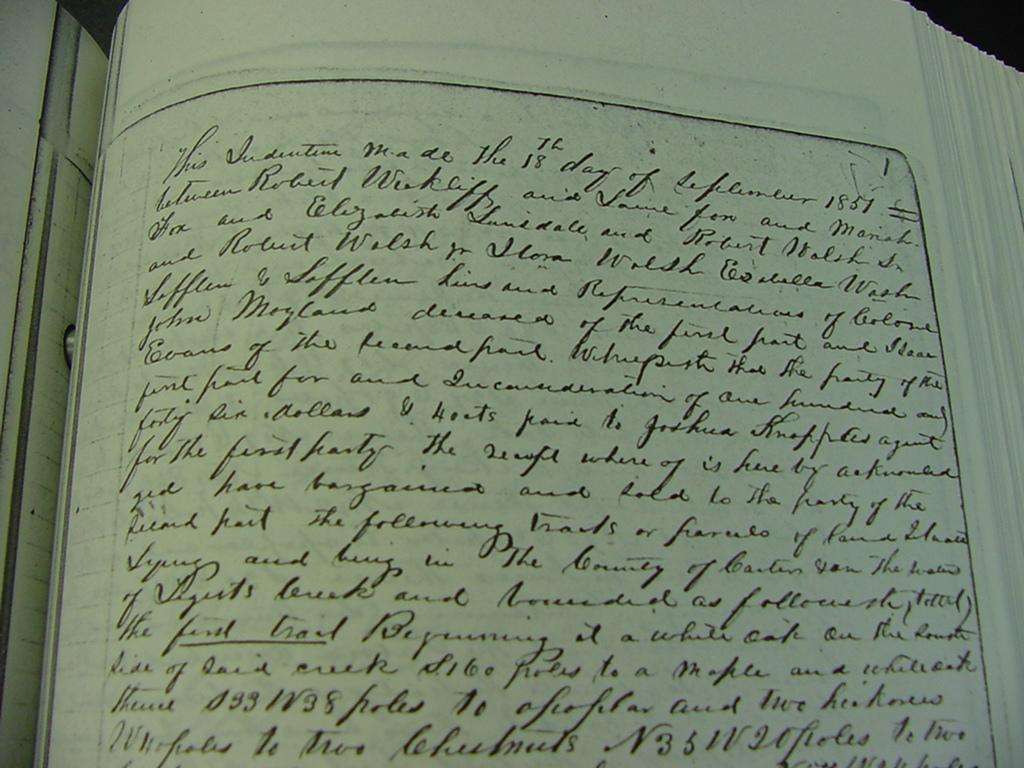 1
This Indenture Made the 18th day of September 1851
between Robert Wickliff and Fox and Mariah
Fox and Elizabeth and Robert Walsh Sr
and Robert Walsh Jr Walsh Walsh
& heirs and Representatives of Colone
John Moyland deceased of the first part and Isaac
Evans of the second part. Whnesseth that the party of the
first part for and Inconsideration of one hundred and
forty six dollars & 40cts paid to Joshua Knapples agent
for the first party the receipt where of is here by acknowled
ged have bargained and sold to the party of the
second part the following tracts or parcels of land Situate
Lying and being in The County of Carter & on the waters
of Creek and bounded as followeth,
the first tract Beginning at a white oak on the South
side of said creek S.160 poles to a Maple and white oak
thence W38 poles to apoplar and two hickories
poles to two Chestnuts N35W20poles to two